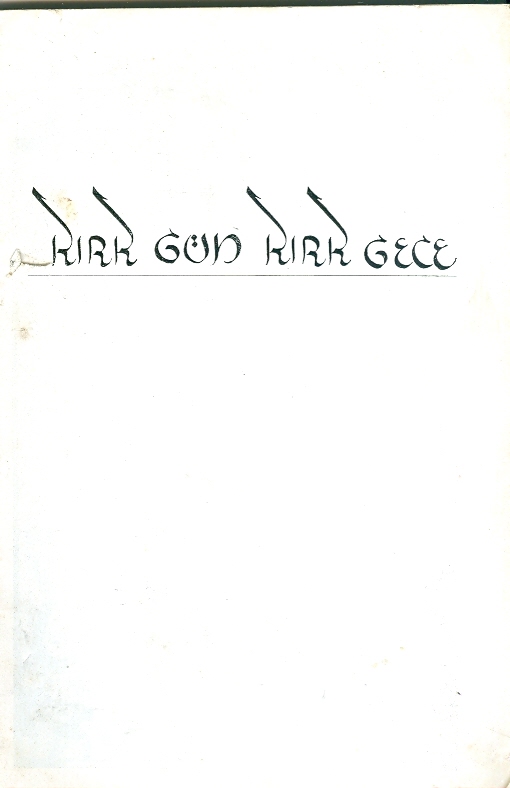 KIRK GÜN KIRK GECE